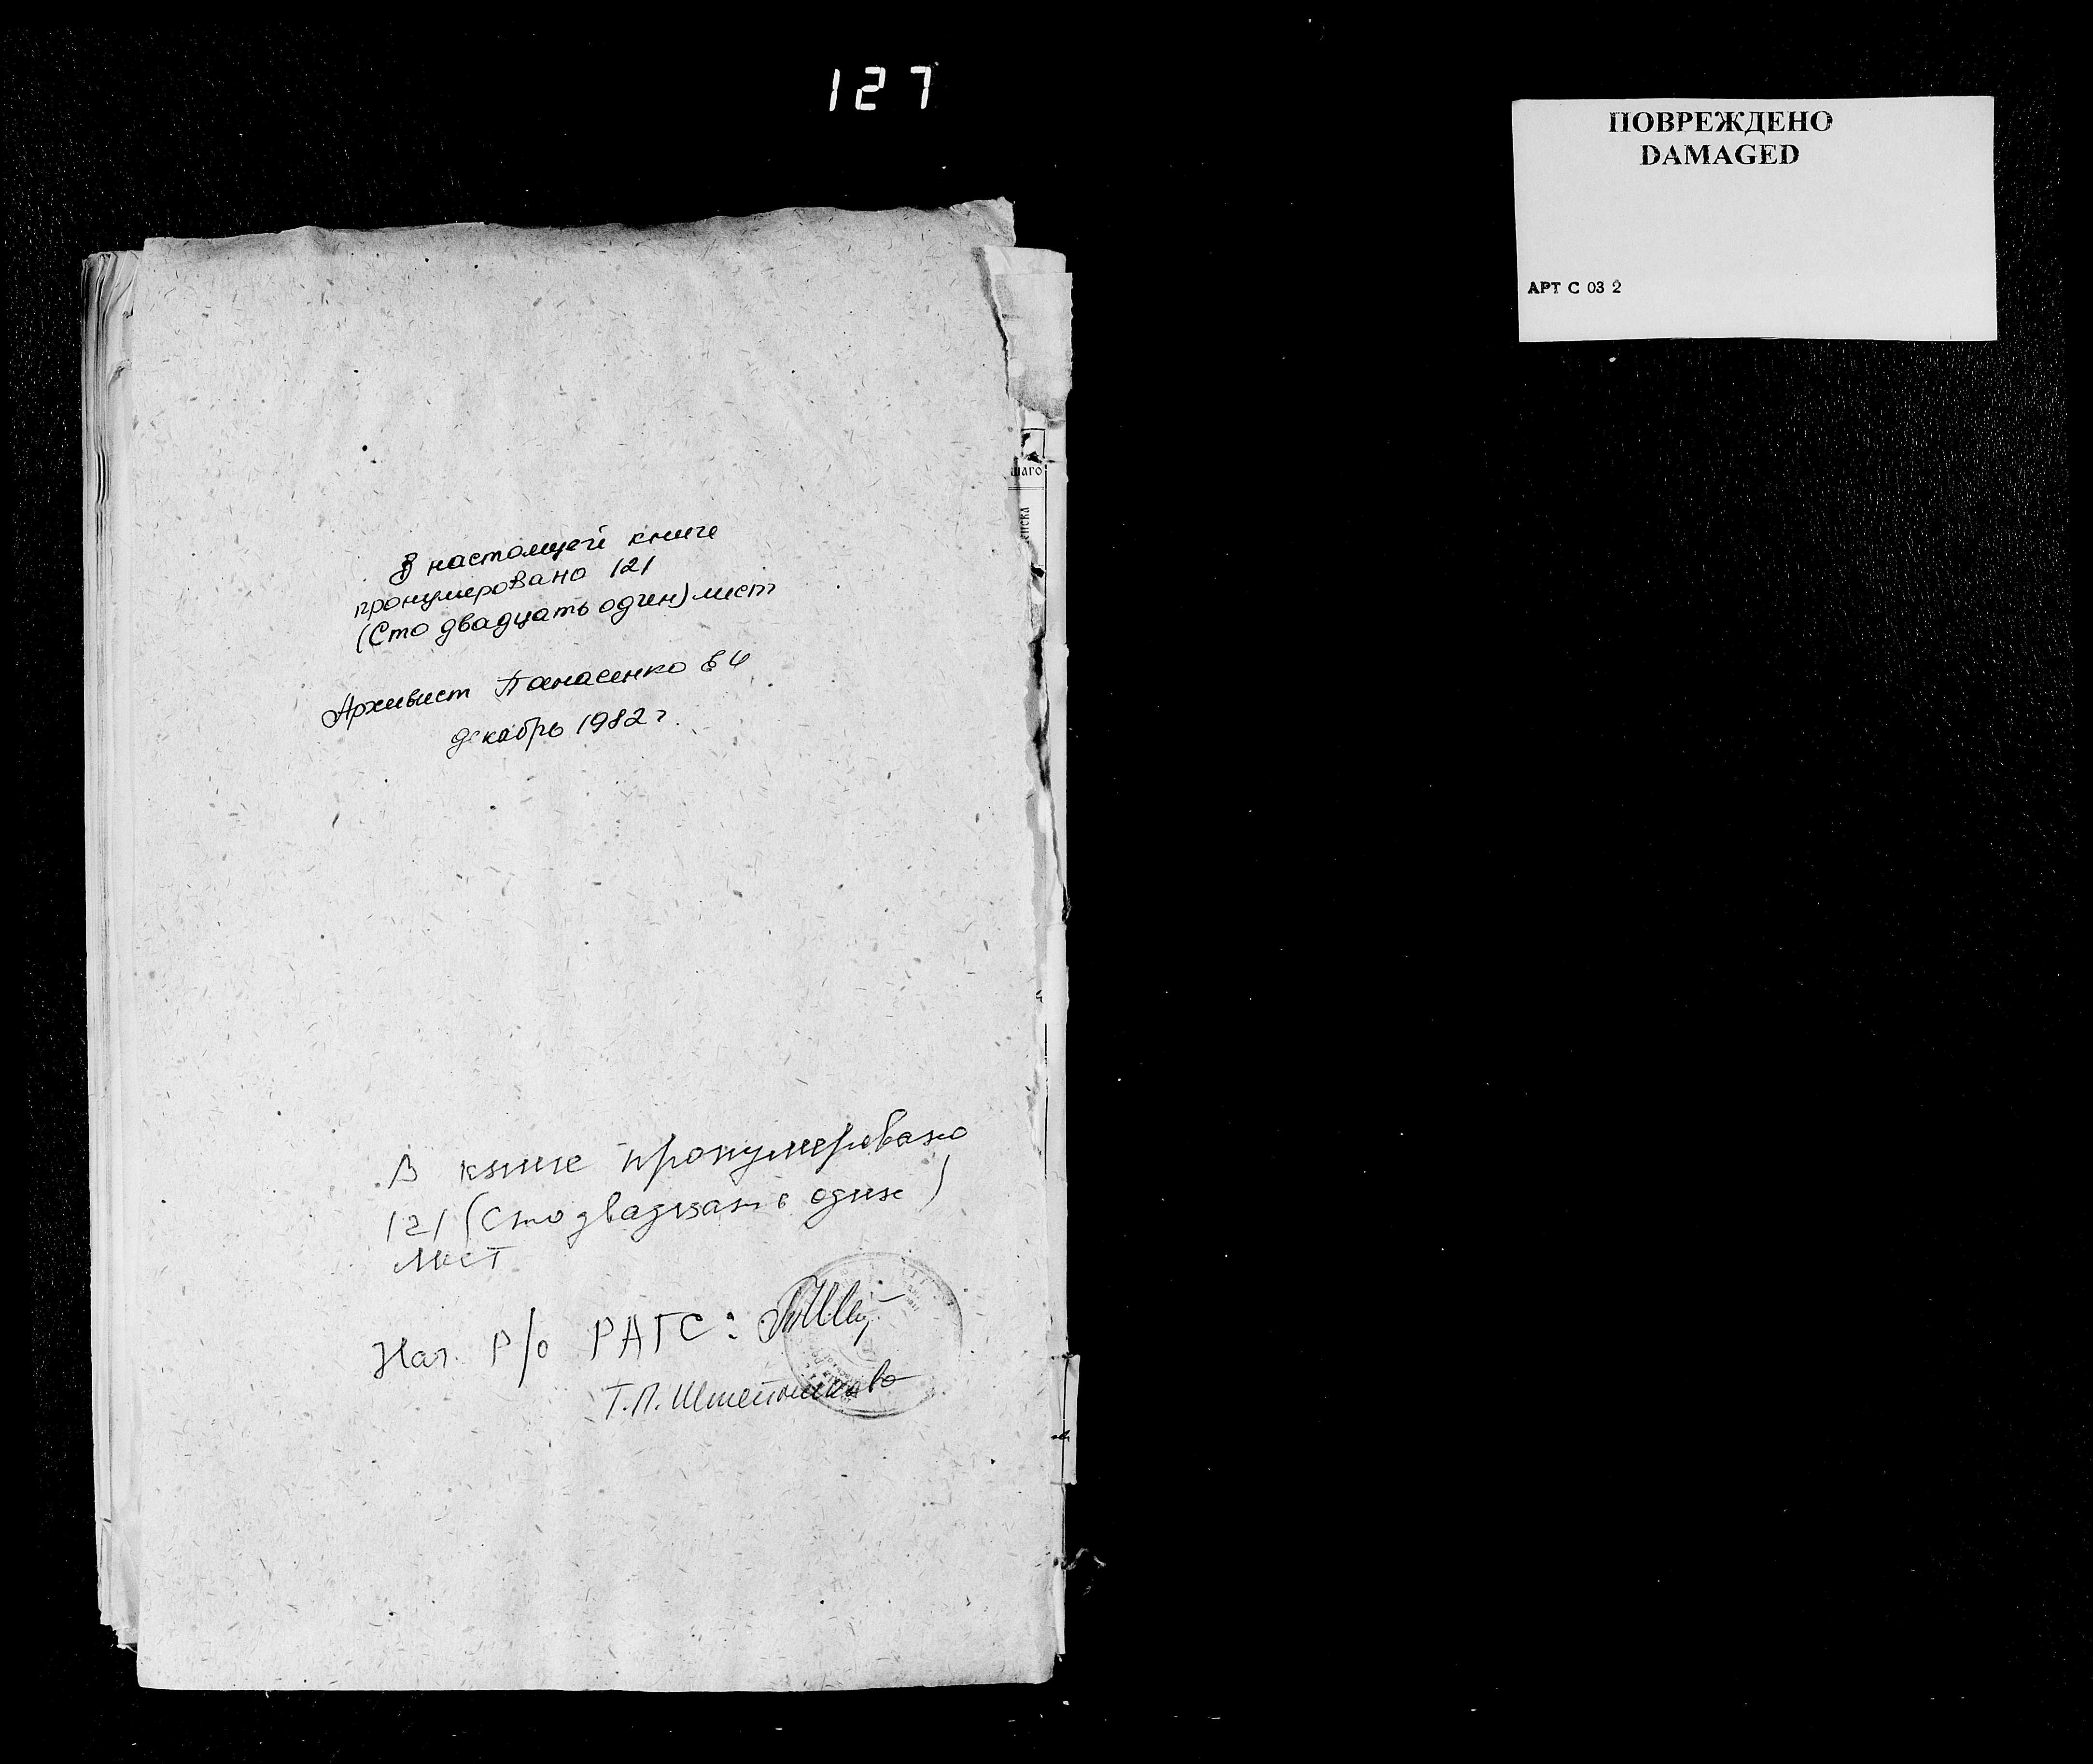 127
ПОВРЕЖДЕНО
DAMAGED
АРТ С 03 2
шаго
В настоящей книге
пронумеровано 121
(Сто двадцать один) лист
Архивист Панасенко Е И
декабрь 1982 г.
В книге пронумеровано
121 (Сто двадцать один)
лист
Нач. Р/о РАГС:
Т.П.